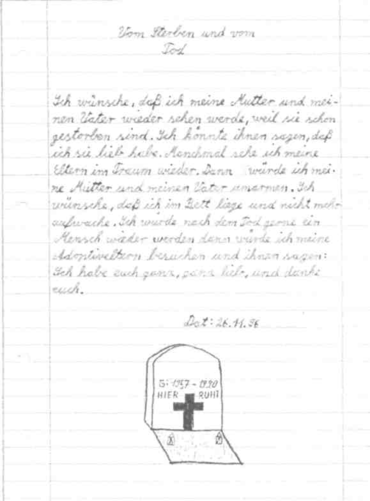 Vom Sterben und vom
Tod
Ich wünsche, daß ich meine Mutter und mei-
nen Vater wieder sehen werde, weil sie schon
gestorben sind. Ich könnte ihnen sagen, daß
ich sie lieb habe. Manchmal sehe ich meine
Eltern im Traum wieder. Dann würde ich mei-
ne Mutter und meinen Vater umarmen. Ich
wünsche, daß ich im Bett läge und nicht mehr
aufwache. Ich würde nach dem Tod gerne ein
Mensch wieder werden dann würde ich meine
Adoptiveltern besuchen und ihnen sagen:
Ich habe euch ganz, ganz lieb, und danke
euch.
Dat: 26.11.96
G: 1937 - 1990
HIER RUHT